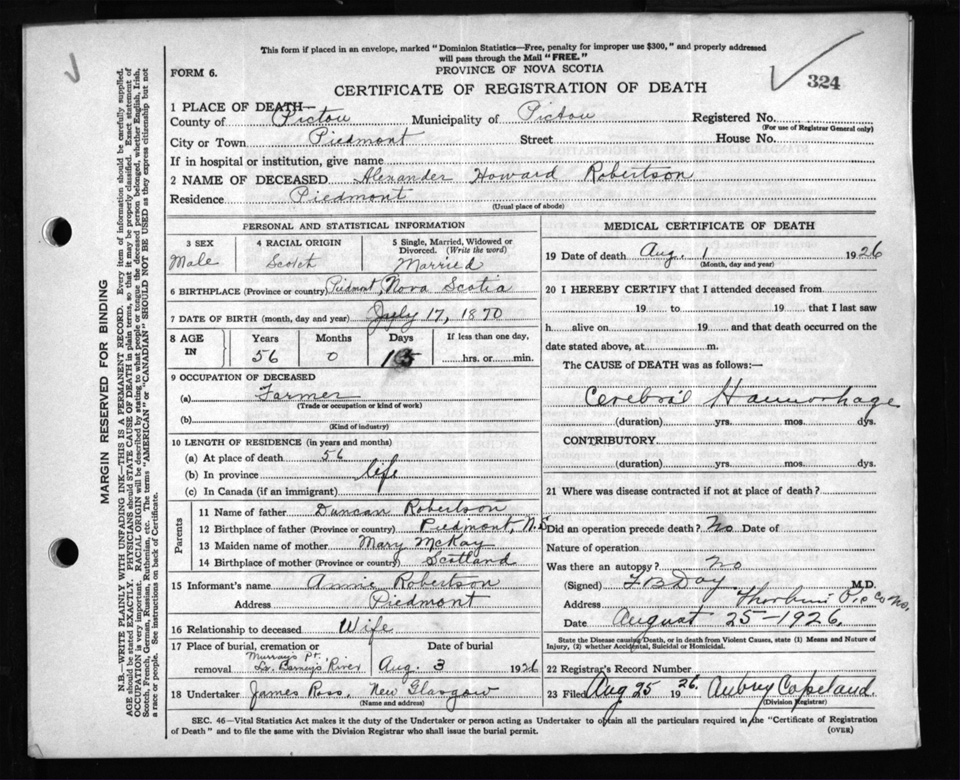 This form if placed in an envelope, marked "Dominion Statistics—Free, penalty for improper use $300," and properly addressed
will pass through the Mail "FREE."
FORM 6.
PROVINCE OF NOVA SCOTIA
324
CERTIFICATE OF REGISTRATION OF DEATH
1 PLACE OF DEATH—
County of Pictou Municipality of Pictou Registered No.
(For use of Registrar General only)
City or Town Piedmont Street House No.
If in hospital or institution, give name
2 NAME OF DECEASED Alexander Howard Robertson
Residence Piedmont
(Usual place of abode)
MARGIN RESERVED FOR BINDING
N.B.—WRITE PLAINLY WITH UNFADING INK—THIS IS A PERMANENT RECORD. Every item of information should be carefully supplied.
AGE should be stated EXACTLY. PHYSICIANS should STATE CAUSE OF DEATH in plain terms, so that it may be properly classified. Exact statement of
OCCUPATION is very important. RACIAL ORIGIN will be described by stating to what people or tongue the deceased person belonged, whether English, Irish,
Scotch, French, German, Russian, Ruthenian, etc. The terms "AMERICAN" or "CANADIAN" SHOULD NOT BE USED as they express citizenship but not
a race or people. See instructions on back of Certificate.
PERSONAL AND STATISTICAL INFORMATION
3 SEX
Male
4 RACIAL ORIGIN
Scotch
5 Single, Married, Widowed or
Divorced. (Write the word)
Married
6 BIRTHPLACE (Province or country) Piedmont, Nova Scotia
7 DATE OF BIRTH (month, day and year) July 17, 1870
8 AGE
IN
Years
56
Months
0
Days
15
If less than one day,
hrs. or min.
9 OCCUPATION OF DECEASED
(a) Farmer
(Trade or occupation or kind of work)
(b)
(Kind of industry)
10 LENGTH OF RESIDENCE (in years and months)
(a) At place of death 56
(b) In province life
(c) In Canada (if an immigrant)
Parents
11 Name of father Duncan Robertson
12 Birthplace of father (Province or country) Piedmont, N.S
13 Maiden name of mother Mary McKay
14 Birthplace of mother (Province or country) Scotland
15 Informant's name Annie Robertson
Address Piedmont
16 Relationship to deceased Wife
17 Place of burial, cremation or
removal Murray's Pt. Barney's River
Date of burial
Aug. 3 1926
18 Undertaker James Ross, New Glasgow
(Name and address)
MEDICAL CERTIFICATE OF DEATH
19 Date of death Aug. 1 1926
(Month, day and year)
20 I HEREBY CERTIFY that I attended deceased from
19 to 19 that I last saw
h alive on 19 and that death occurred on the
date stated above, at m.
The CAUSE of DEATH was as follows:—
Cerebral Haemorhage
(duration) yrs. mos. dys.
CONTRIBUTORY
(duration) yrs. mos. dys.
21 Where was disease contracted if not at place of death?
Did an operation precede death? No Date of
Nature of operation
Was there an autopsy? No
(Signed) F B Day M.D.
Address Thorburn Pic Co
Date August 25—1926.
State the Disease causing Death, or in death from Violent Causes, state (1) Means and Nature of
Injury, (2) whether Accidental, Suicidal or Homicidal.
22 Registrar's Record Number
23 Filed Aug 25 1926. Aubrey Copeland.
(Division Registrar)
SEC. 46—Vital Statistics Act makes it the duty of the Undertaker or person acting as Undertaker to obtain all the particulars required in the "Certificate of Registration
of Death" and to file the same with the Division Registrar who shall issue the burial permit.
(OVER)